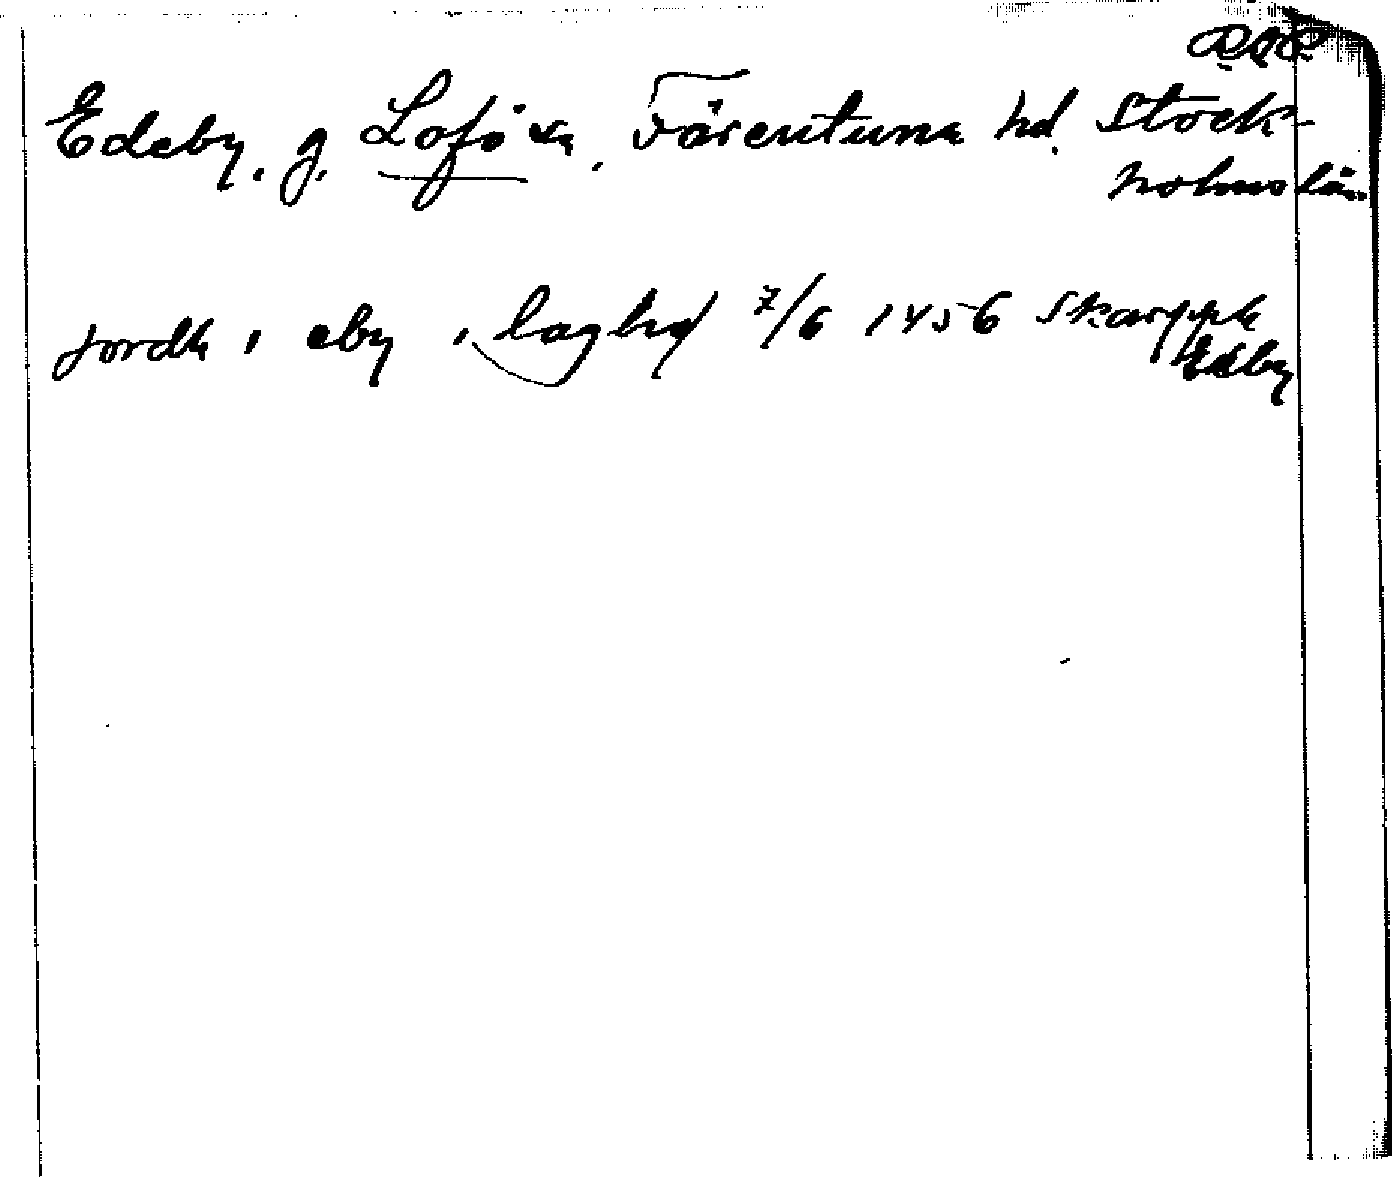 Edeby. g. Lofö sn, Färentuna hd. Stock-
holms län.
jordh i eby i laghœ 7/6 1456 Skarppk
Edby